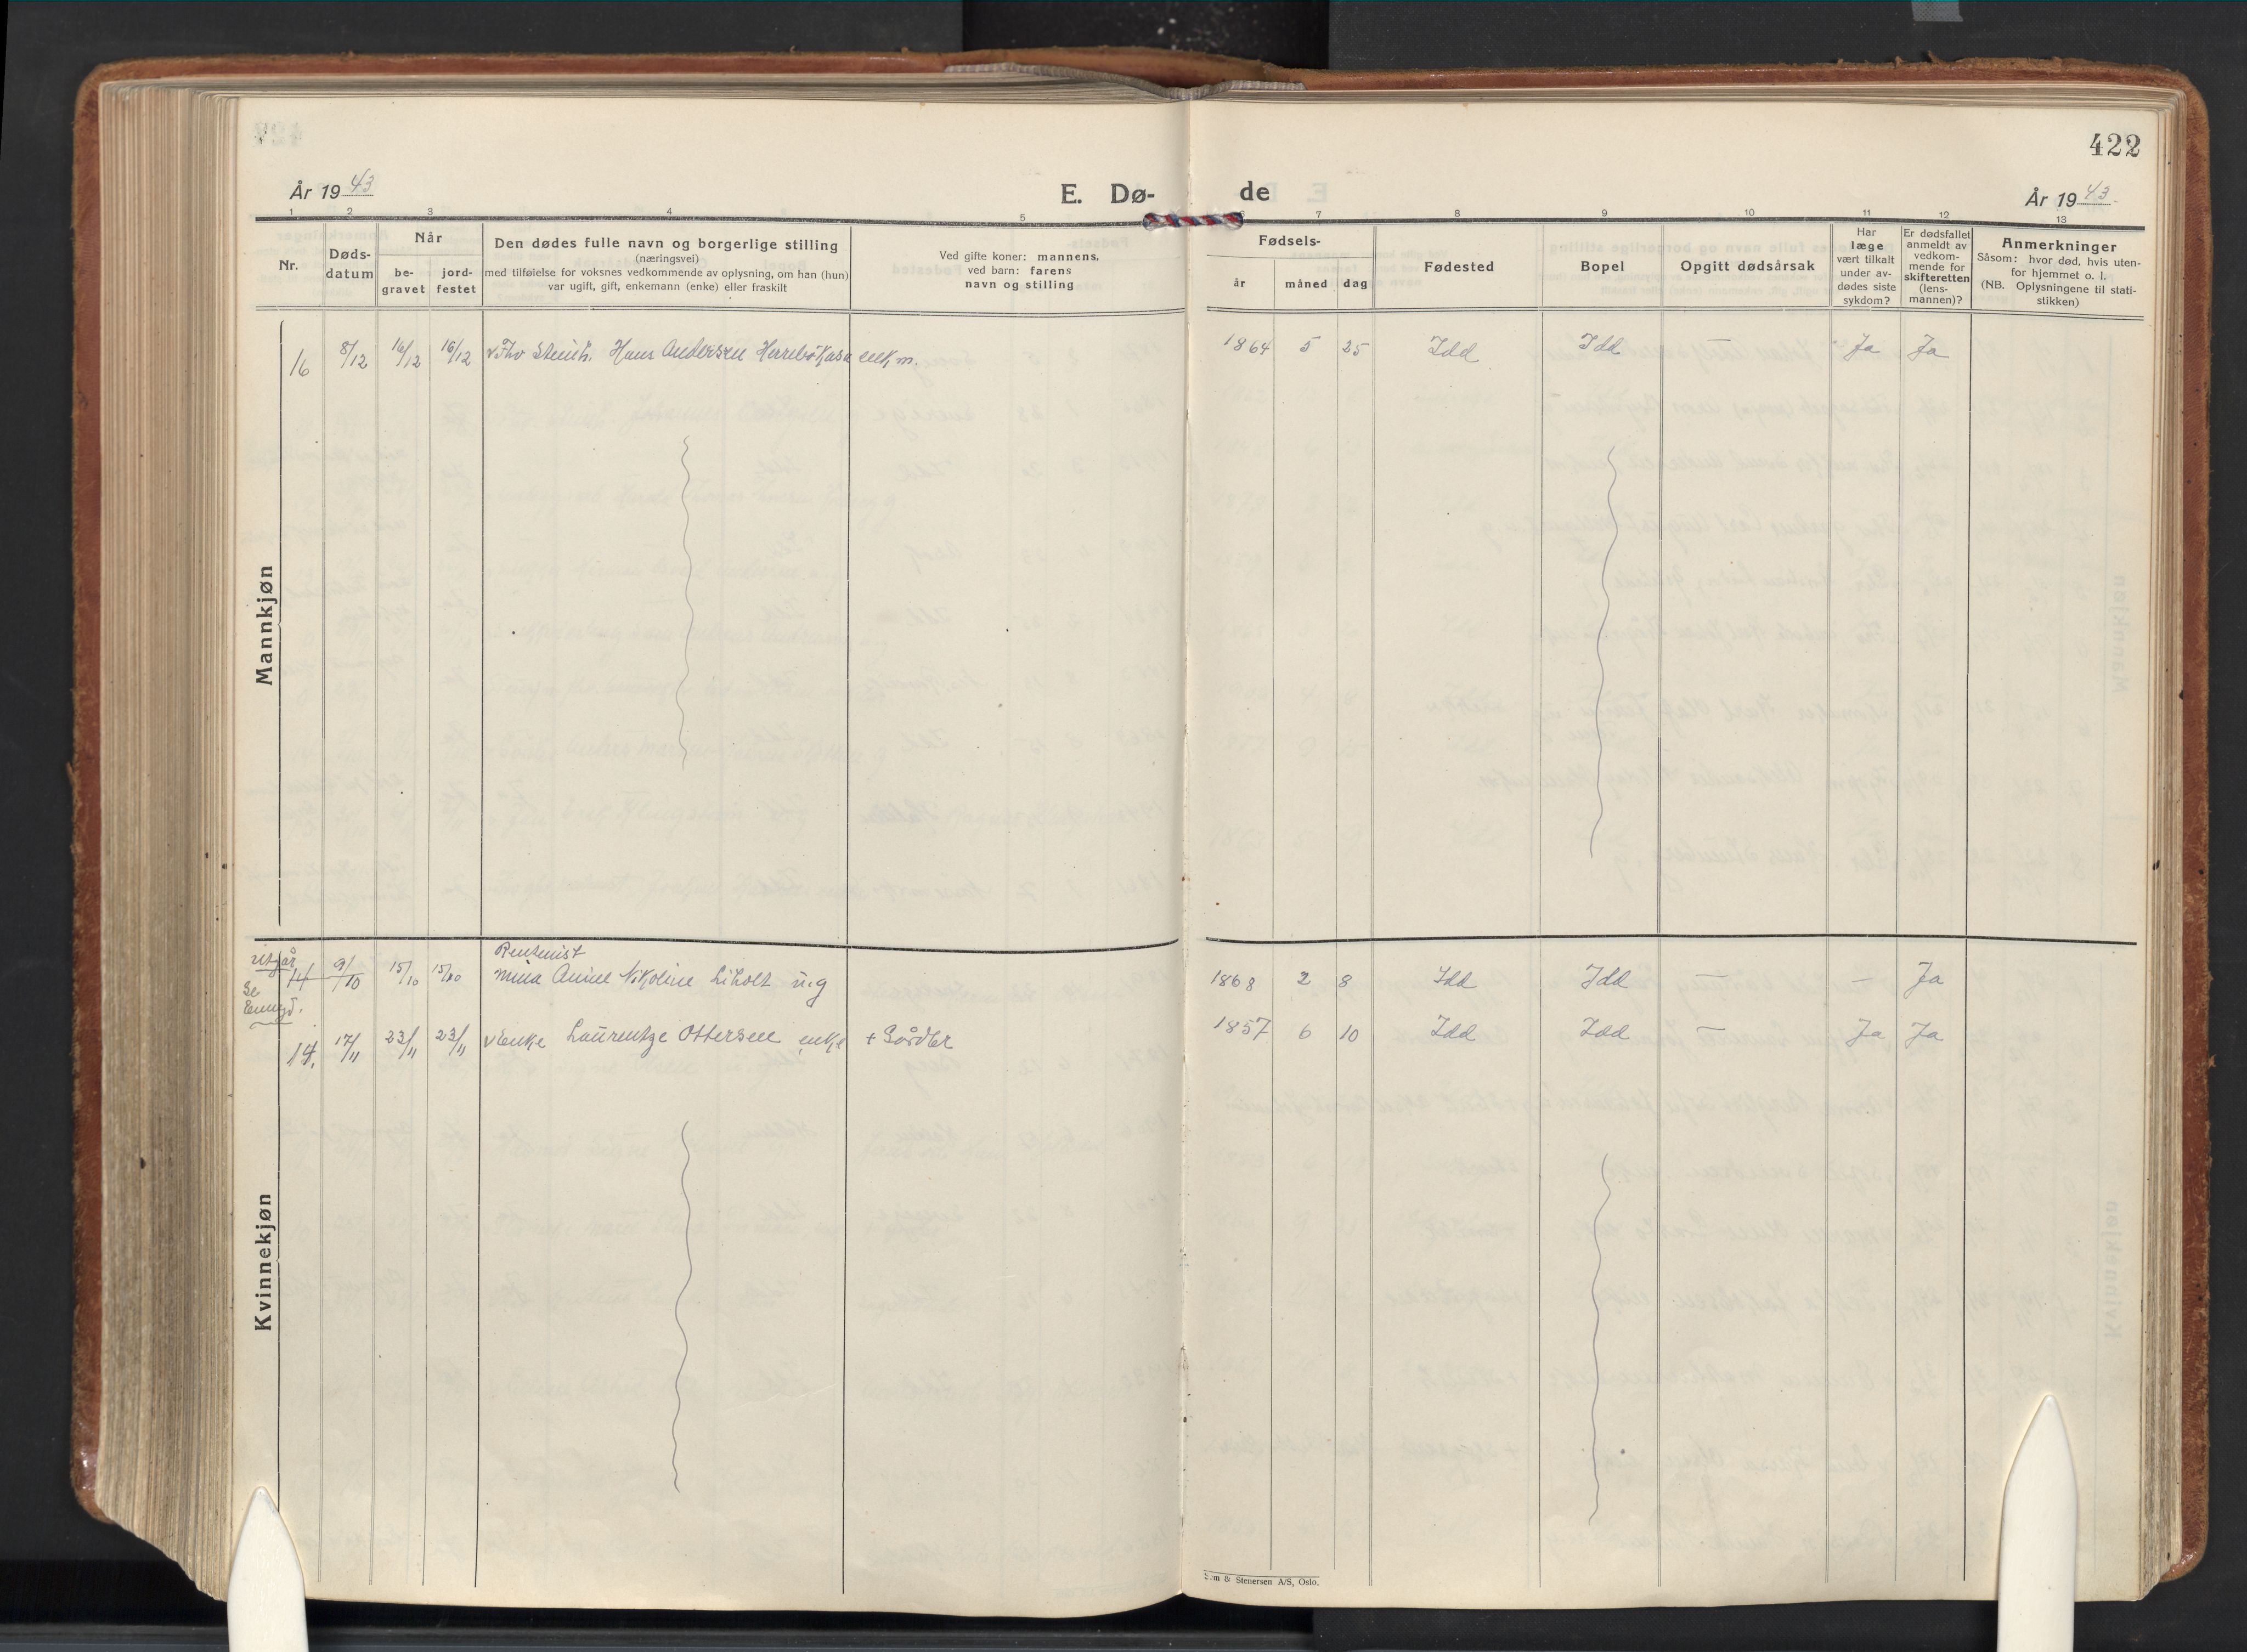 422
År 1943
E. Dø-
de
År 1943
1 2 3 4 5 6 7 8 9 10 11 12 13
Nr.
Døds-
datum
Når
be-
gravet
jord-
festet
Den dødes fulle navn og borgerlige stilling
(næringsvei)
med tilføielse for voksnes vedkommende av oplysning, om han (hun)
var ugift, gift, enkemann (enke) eller fraskilt
Ved gifte koner: mannens,
ved barn: farens
navn og stilling
Fødsels-
år
måned
dag
Fødested
Bopel
Opgitt dødsårsak
Har
læge
vært tilkalt
under av-
dødes siste
sykdom?
Er dødsfallet
anmeldt av
vedkom-
mende for
skifteretten
(lens-
mannen)?
Anmerkninger
Såsom: hvor død, hvis uten-
for hjemmet o. l.
(NB. Oplysningene til stati-
stikken)
Mannkjøn
16 8/12 16/12 16/12 Hans Andersen enkm. 1864 5 25 Idd Idd — Ja Ja
Kvinnekjøn
Rentenist
utgår 14 9/10 15/10 15/10 Mina Anine Nikoline Liholt u.g 1868 2 8 Idd Idd — — Ja
Se
14. 17/11 23/11 23/11 v Enke Laurentze Ottersen enke + Gårdbr 1857 6 10 Idd Idd — Ja Ja
& Stenersen A/S, Oslo.